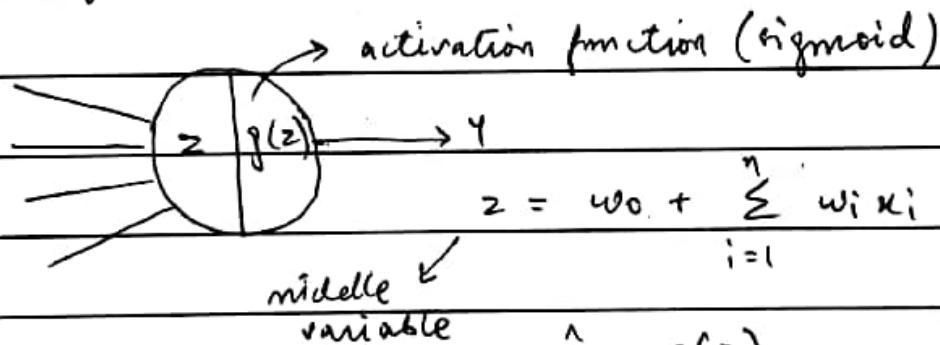 activation function (sigmoid)
z g(z) y
n
z = w0 + Σ wi xi
i=1
midelle
variable